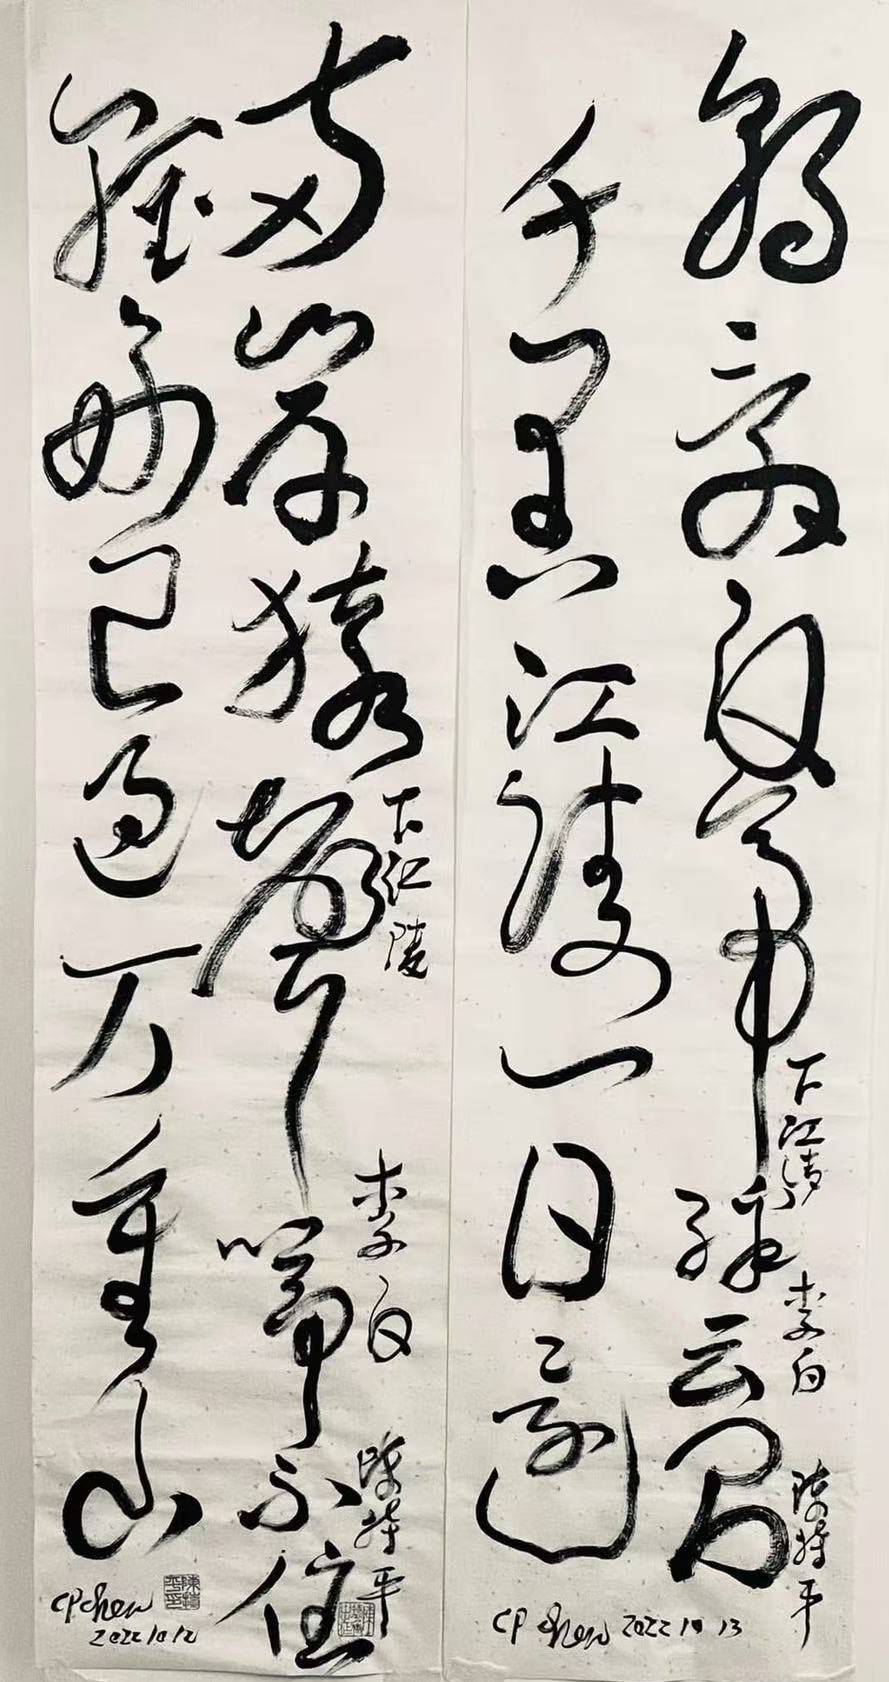 朝辭白帝彩云間
千里江陵一日還
下江陵 李白 陳持平
CP chen 2022 10 13
兩岸猿聲啼不住
輕舟已過万重山
下江陵 李白 陳持平
CP chen
2022 10 12